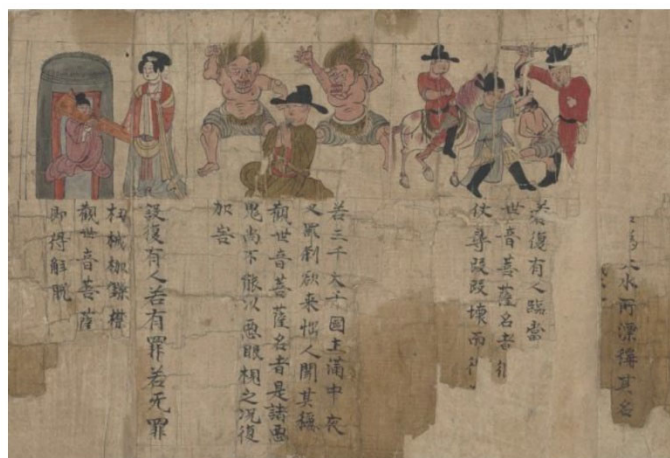 為大水所漂稱其名
若復有人臨當
世音菩薩名者
仗尋段段壞而
若三千大千國土滿中夜
叉羅剎欲來惱人聞其稱
觀世音菩薩名者是諸惡
鬼尚不能以惡眼視之況復
加害
設復有人若有罪若无罪
杻械枷鏁檢
觀世音菩薩
即得解脫